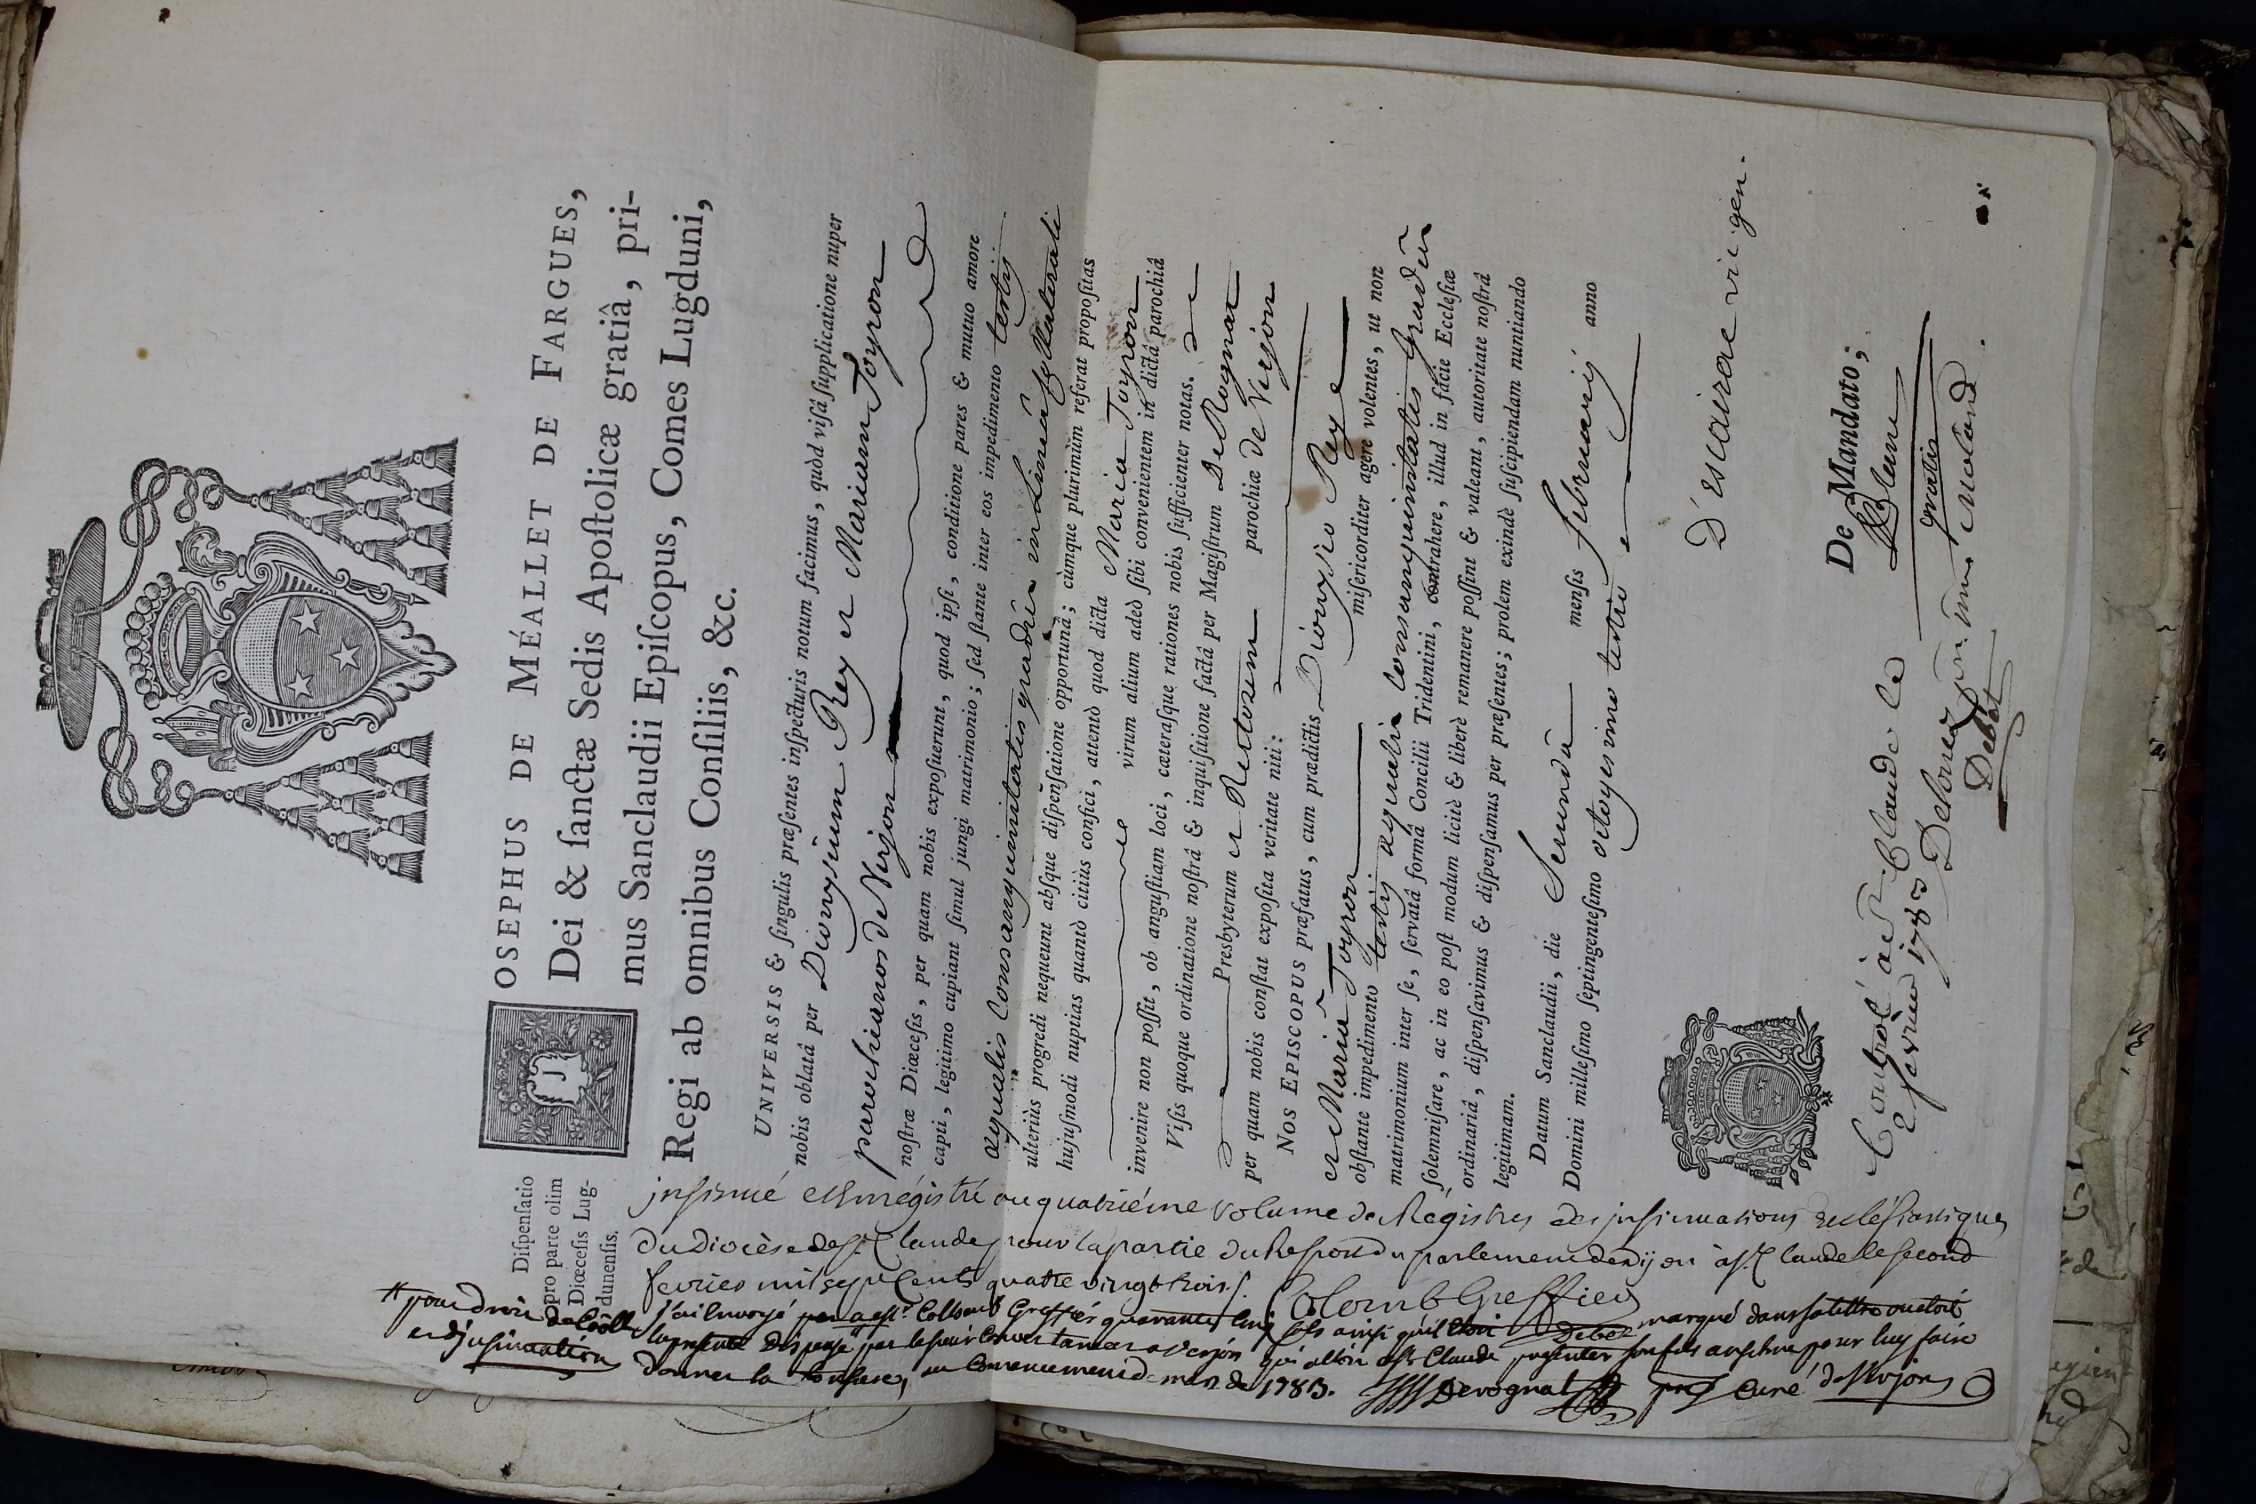 Dispensatio
pro parte olim
Diœcesis Lug-
dunensis.
JOSEPHUS DE MÉALLET DE FARGUES,
Dei & sanctæ Sedis Apostolicæ gratiâ, pri-
mus Sanclaudii Episcopus, Comes Lugduni,
Regi ab omnibus Consiliis, &c.
UNIVERSIS & singulis præsentes inspecturis notum facimus, quòd visâ supplicatione nuper
nobis oblatâ per Dionysium Rey et Mariam Joyron
parochianos de Verjon
nostræ Diœcesis, per quam nobis exposuerunt, quod ipsi, conditione pares & mutuo amore
capti, legitimo cupiant simul jungi matrimonio; sed stante inter eos impedimento tertij
æqualis consanguinitatis gradus in linea collaterali
ulteriùs progredi nequeunt absque dispensatione opportunâ; cùmque plurimùm referat propositas
hujusmodi nuptias quantò citiùs confici, attentò quod dicta Maria Joyron
virum alium adeò sibi convenientem in dictâ parochiâ
invenire non possit, ob angustiam loci, cæterasque rationes nobis sufficienter notas. de
Visis quoque ordinatione nostrâ & inquisitione factâ per Magistrum De Rognat
Presbyterum et Rectorem parochiæ de Verjon
per quam nobis constat exposita veritate niti:
NOS EPISCOPUS præfatus, cum prædictis Dionysio Rey
et Mariâ Joyron misericorditer agere volentes, ut non
obstante impedimento tertij æqualis consanguinitatis gradus
matrimonium inter se, servatâ formâ Concilii Tridentini, contrahere, illud in facie Ecclesiæ
solemnisare, ac in eo post modum licitè & liberè remanere possint & valeant, autoritate nostrâ
ordinariâ, dispensavimus & dispensamus per præsentes; prolem exindè suscipiendam nuntiando
legitimam.
Datum Sanclaudii, die Secundâ mensis februarij anno
Domini millesimo septingentesimo octogesimo tertio
D'escairac vic gén.
De Mandato;
gratis
Controlé à St. Claude le
2 fevrier 1783
Debet
insinué et enrégistré au quatriéme volume des Régistres des insinuations Ecclésiastiques
du Diocèse de St. Claude pour la partie du Ressort du parlement de dijon à St. Claude le second
fevrier mil sept cents quatre vingt trois.
Colomb Greffier
pour droit de
et d'jnsinuatión
j'ai Envoyé Greffiér quarante cinq sols ainsi qu'il marqué dans sa lettre
la présente Dispense par le sieur qui alloit à St Claude presenter son fils pour luy faire
donner la tonsure, au Commencement de mars de 1783. Derognat curé de Verjon